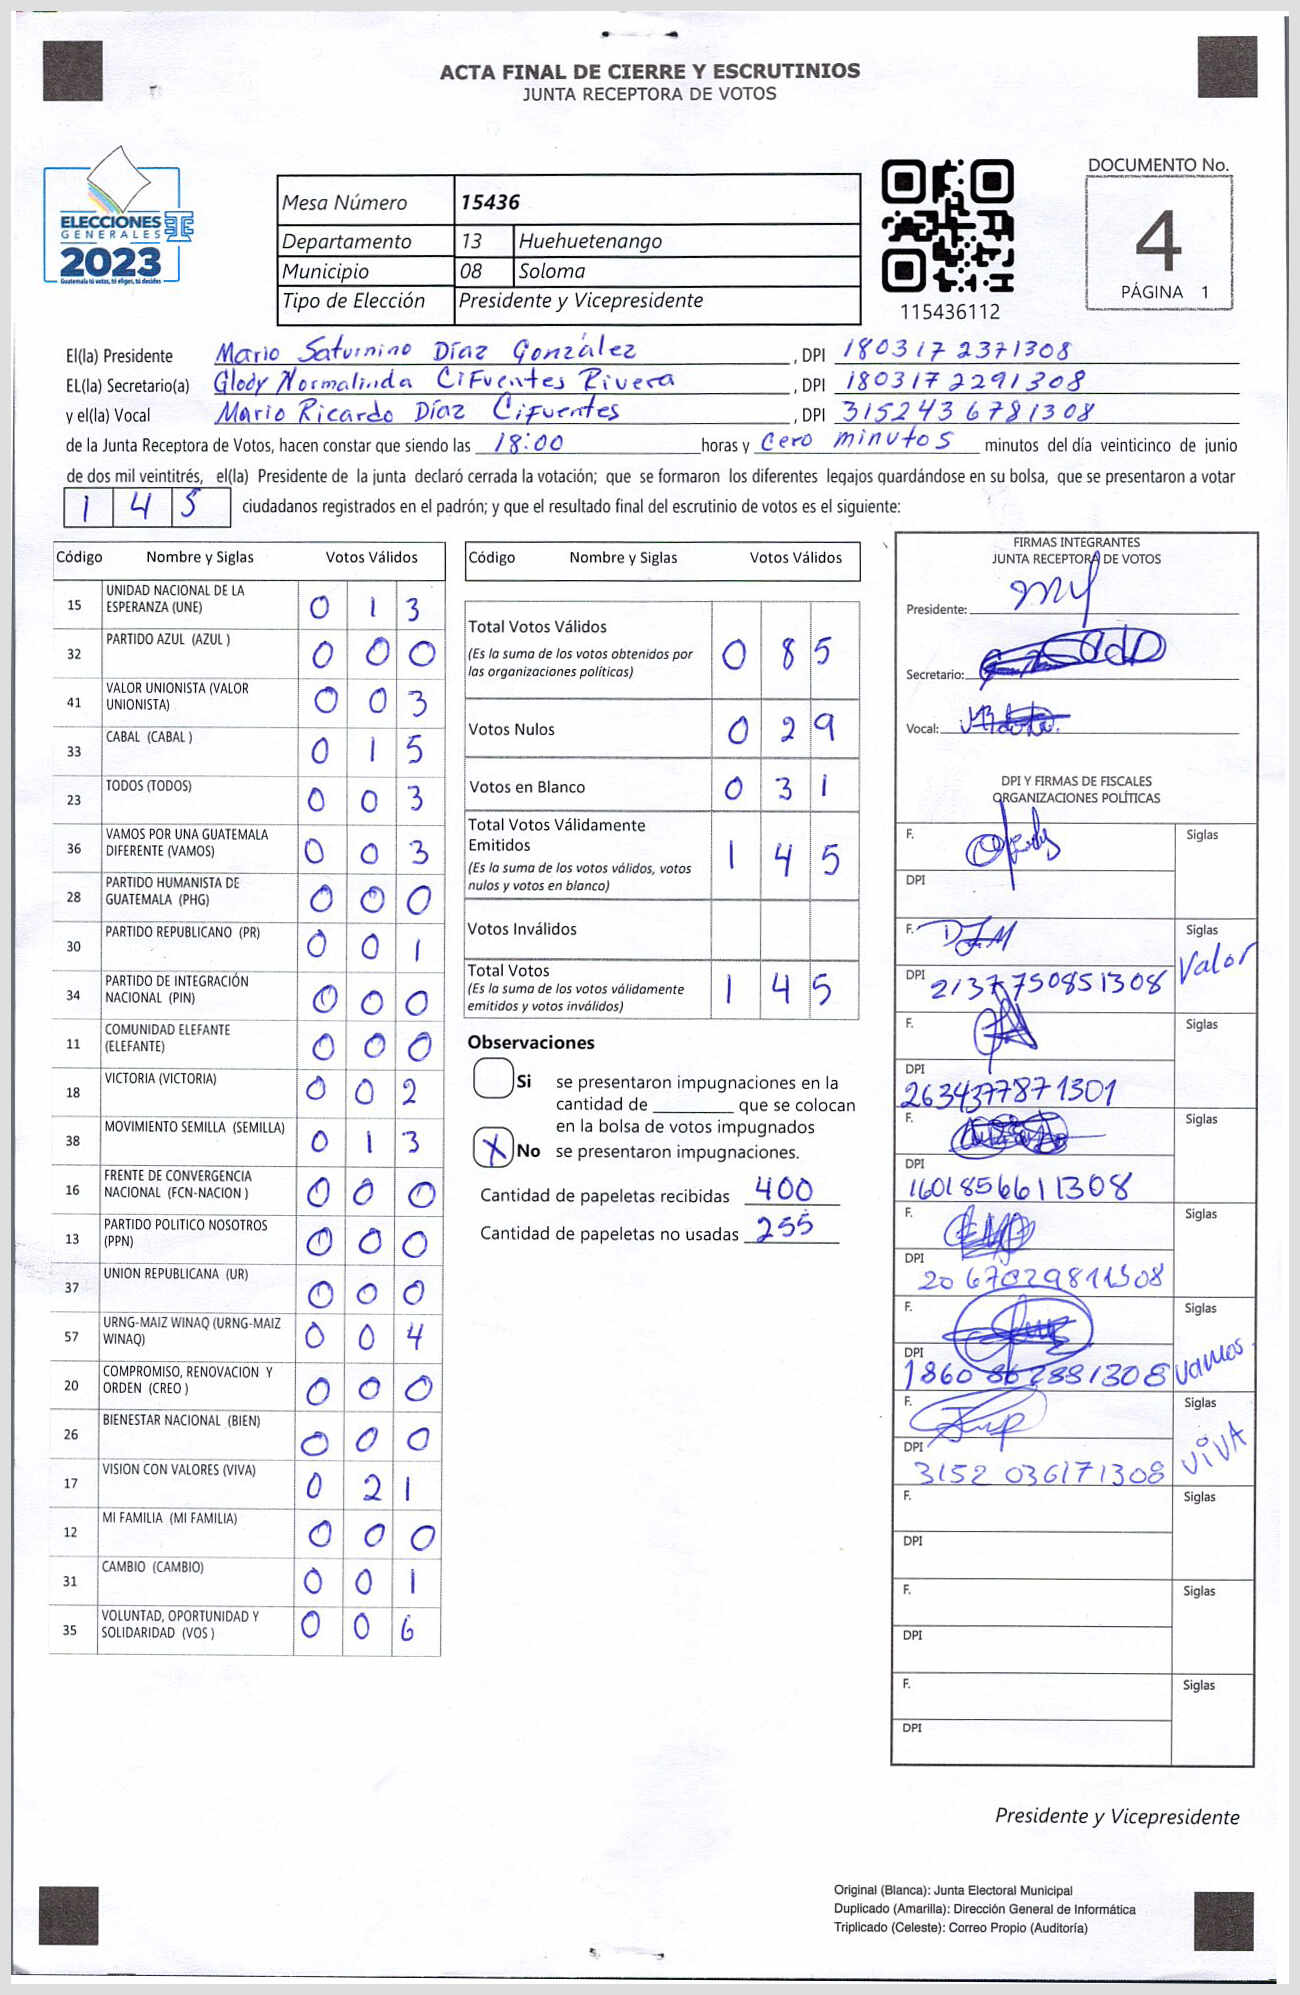 ACTA FINAL DE CIERRE Y ESCRUTINIOS
JUNTA RECEPTORA DE VOTOS
ELECCIONES
GENERALES
2023
Guatemala tú votas, tú eliges, tú decides
Mesa Número 15436
Departamento 13 Huehuetenango
Municipio 08 Soloma
Tipo de Elección Presidente y Vicepresidente
115436112
DOCUMENTO No.
4
PÁGINA 1
El(la) Presidente Mario Saturnino Díaz González, DPI 1803172371308
EL(la) Secretario(a) Glody Normalinda Cifuentes Rivera, DPI 1803172291308
y el(la) Vocal Mario Ricardo Díaz Cifuentes, DPI 3152436781308
de la Junta Receptora de Votos, hacen constar que siendo las 18:00 horas y cero minutos minutos del día veinticinco de junio
de dos mil veintitrés, el(la) Presidente de la junta declaró cerrada la votación; que se formaron los diferentes legajos quardándose en su bolsa, que se presentaron a votar
1 4 5 ciudadanos registrados en el padrón; y que el resultado final del escrutinio de votos es el siguiente:
Código Nombre y Siglas Votos Válidos
15 UNIDAD NACIONAL DE LA ESPERANZA (UNE) 0 1 3
32 PARTIDO AZUL (AZUL ) 0 0 0
41 VALOR UNIONISTA (VALOR UNIONISTA) 0 0 3
33 CABAL (CABAL ) 0 1 5
23 TODOS (TODOS) 0 0 3
36 VAMOS POR UNA GUATEMALA DIFERENTE (VAMOS) 0 0 3
28 PARTIDO HUMANISTA DE GUATEMALA (PHG) 0 0 0
30 PARTIDO REPUBLICANO (PR) 0 0 1
34 PARTIDO DE INTEGRACIÓN NACIONAL (PIN) 0 0 0
11 COMUNIDAD ELEFANTE (ELEFANTE) 0 0 0
18 VICTORIA (VICTORIA) 0 0 2
38 MOVIMIENTO SEMILLA (SEMILLA) 0 1 3
16 FRENTE DE CONVERGENCIA NACIONAL (FCN-NACION ) 0 0 0
13 PARTIDO POLITICO NOSOTROS (PPN) 0 0 0
37 UNION REPUBLICANA (UR) 0 0 0
57 URNG-MAIZ WINAQ (URNG-MAIZ WINAQ) 0 0 4
20 COMPROMISO, RENOVACION Y ORDEN (CREO ) 0 0 0
26 BIENESTAR NACIONAL (BIEN) 0 0 0
17 VISION CON VALORES (VIVA) 0 2 1
12 MI FAMILIA (MI FAMILIA) 0 0 0
31 CAMBIO (CAMBIO) 0 0 1
35 VOLUNTAD, OPORTUNIDAD Y SOLIDARIDAD (VOS ) 0 0 6
Código Nombre y Siglas Votos Válidos
Total Votos Válidos 0 8 5
(Es la suma de los votos obtenidos por
las organizaciones políticas)
Votos Nulos 0 2 9
Votos en Blanco 0 3 1
Total Votos Válidamente
Emitidos 1 4 5
(Es la suma de los votos válidos, votos
nulos y votos en blanco)
Votos Inválidos
Total Votos 1 4 5
(Es la suma de los votos válidamente
emitidos y votos inválidos)
Observaciones
Si se presentaron impugnaciones en la
cantidad de ________ que se colocan
en la bolsa de votos impugnados
X No se presentaron impugnaciones.
Cantidad de papeletas recibidas 400
Cantidad de papeletas no usadas 255
FIRMAS INTEGRANTES
JUNTA RECEPTORA DE VOTOS
Presidente:
Secretario:
Vocal:
DPI Y FIRMAS DE FISCALES
ORGANIZACIONES POLÍTICAS
F. Siglas
DPI
F. Siglas Valor
DPI 2137750851308
F. Siglas
DPI 2634377871301
F. Siglas
DPI 1601856611308
F. Siglas
DPI
F. Siglas Vamos
DPI
F. Siglas VIVA
DPI 3152 036171308
F. Siglas
DPI
F. Siglas
DPI
F. Siglas
DPI
Presidente y Vicepresidente
Original (Blanca): Junta Electoral Municipal
Duplicado (Amarilla): Dirección General de Informática
Triplicado (Celeste): Correo Propio (Auditoría)